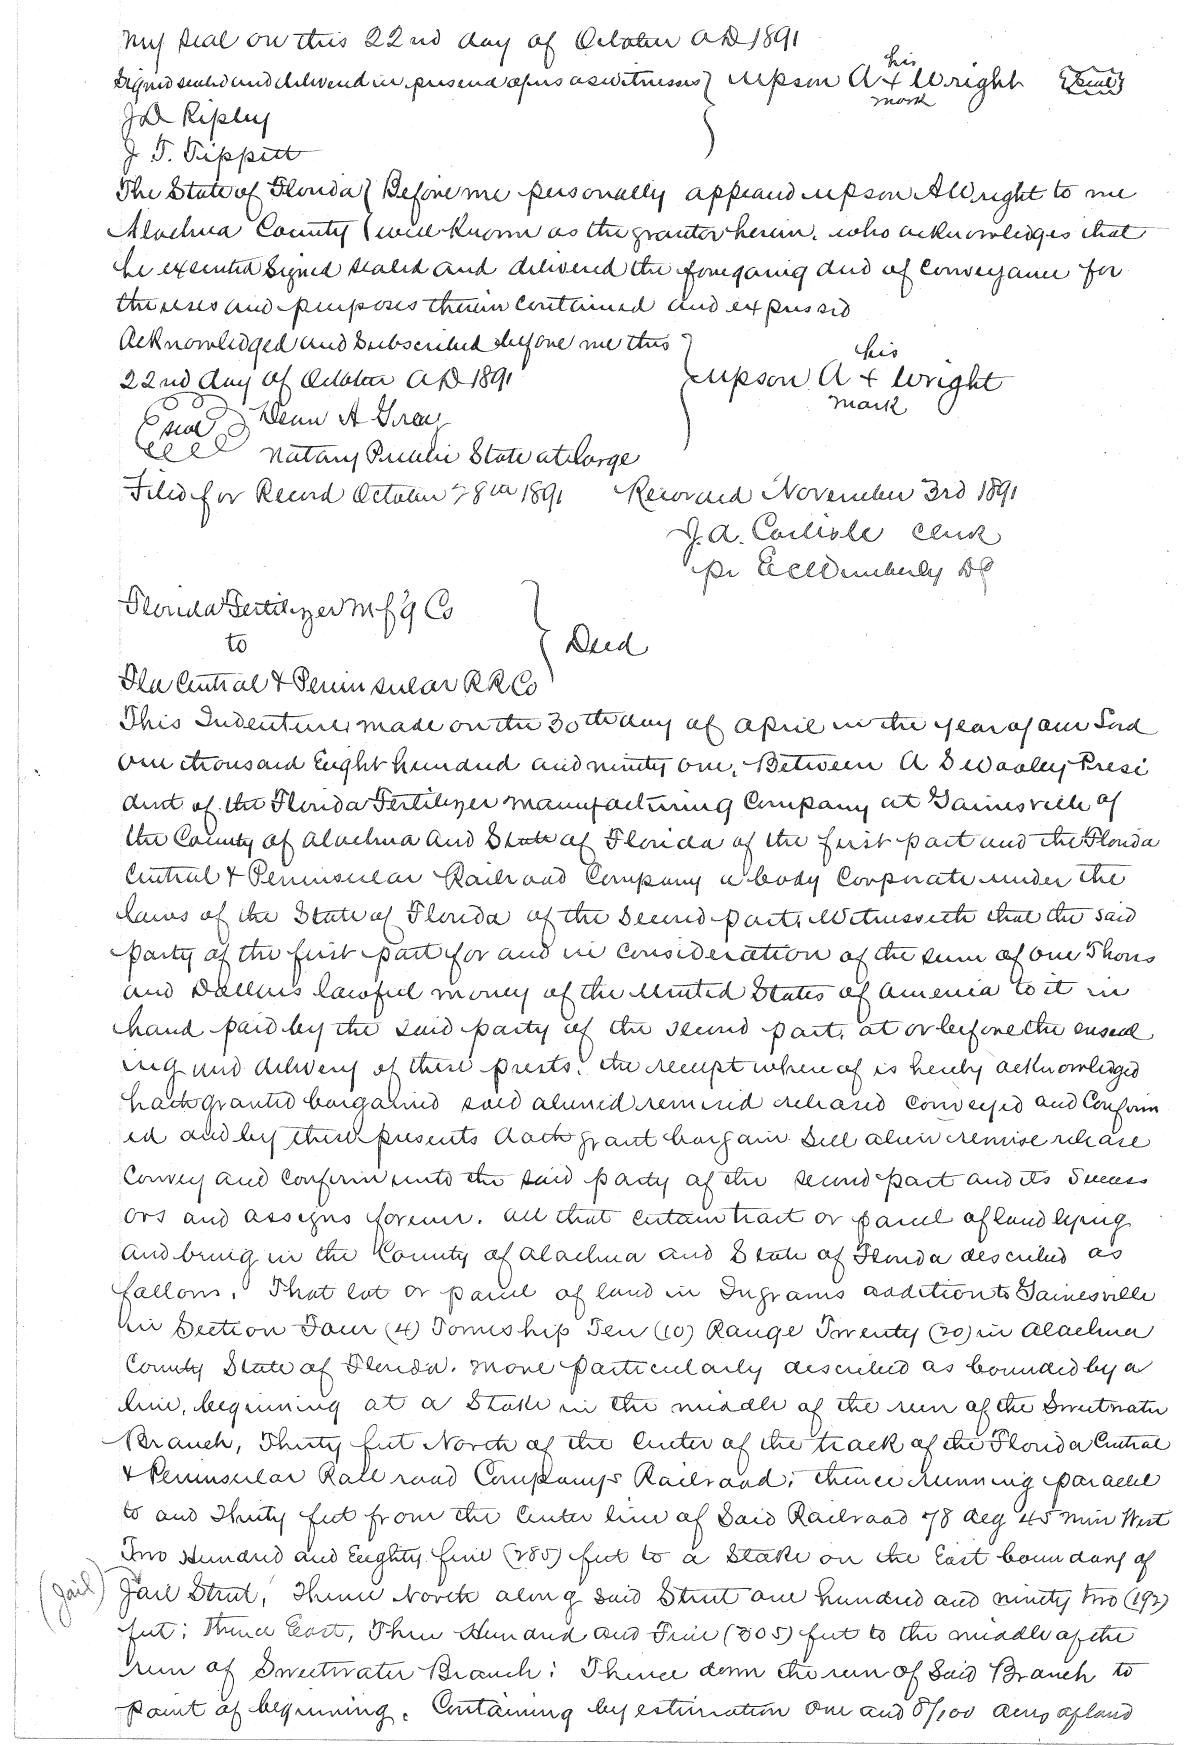 my seal on this 22nd day of October AD 1891
Signed sealed and delivered in presence of us as witnesses } Upson A his + mark Wright (seal)
J D Ripley
J. T. Tippitt
The State of Florida } Before me personally appeared Upson A Wright to me
Alachua County } well known as the grantor herein. who acknowledges that
he executed signed sealed and delivered the foregoing deed of conveyance for
the uses and purposes therein contained and expressed
Acknowledged and subscribed before me this } his
22nd day of October AD 1891 } Upson A + Wright
mark
(seal) A Gray
Notary Public State at Large
Filed for Record October 28th 1891 Recorded November 3rd 1891
J. A. Carlisle Clerk
pr E C Wimberly DC
Florida Fertilizer M'f'g Co
to } Deed
Fla Central & Peninsular RR Co
This Indenture, made on the 30th day of April in the year of our Lord
one thousand Eight hundred and ninety one, Between A S Wooley Presi
dent of the Florida Fertilizer Manufacturing Company at Gainesville of
the County of Alachua and State of Florida of the first part and the Florida
Central & Peninsular Railroad Company a body Corporate under the
laws of the State of Florida of the Second part, Witnesseth that the said
party of the first part for and in consideration of the sum of one Thous
and Dollars lawful money of the United States of America to it in
hand paid by the said party of the second part, at or before the enseal
ing and delivery of these prests. the receipt where of is hereby acknowledged
hath granted bargained sold aliened remised released conveyed and confirm
ed and by these presents doth grant bargain sell alien remise release
convey and confirm unto the said party of the second part and its success
ors and assigns forever. all that certain tract or parcel of land lying
and being in the County of Alachua and State of Florida described as
follows. That lot or parcel of land in Ingrams addition to Gainesville
in Section Four (4) Township Ten (10) Range Twenty (20) in Alachua
County State of Florida. more particularly described as bounded by a
line, beginning at a Stake in the middle of the run of the Sweetwater
Branch, Thirty feet North of the Center of the track of the Florida Central
& Peninsular Rail road Company's Railroad; thence running parallel
to and Thirty feet from the Center line of Said Railroad 78 deg 45 min West
Two Hundred and Eighty five (285) feet to a Stake on the East boundary of
(Jail) Jail Street, Thence North along said Street one hundred and ninety two (192)
feet; thence East, Three Hundred and Five (305) feet to the middle of the
run of Sweetwater Branch; Thence down the run of Said Branch to
point of beginning. Containing by estimation one and 8/100 acres of land